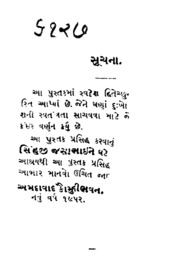 ૬૧૨૭
સૂચના.
આ પુસ્તકમાં સ્વદેશ હિતેચ્છુ
રિત આપ્યાં છે. જેને ઘણાં દુઃખો
શની સ્વતંત્રતા સાચવવા માટે જે
વર્ણન કર્યું છે.
આ પુસ્તક પ્રસિદ્ધ કરવાનું
જસાભાઈને ઘટે
આશ્રયથી આ પુસ્તક પ્રસિદ્ધ
આભાર માનવો ઉચિત
અમદાવાદ
નવું વર્ષ ૧૯૫૨.